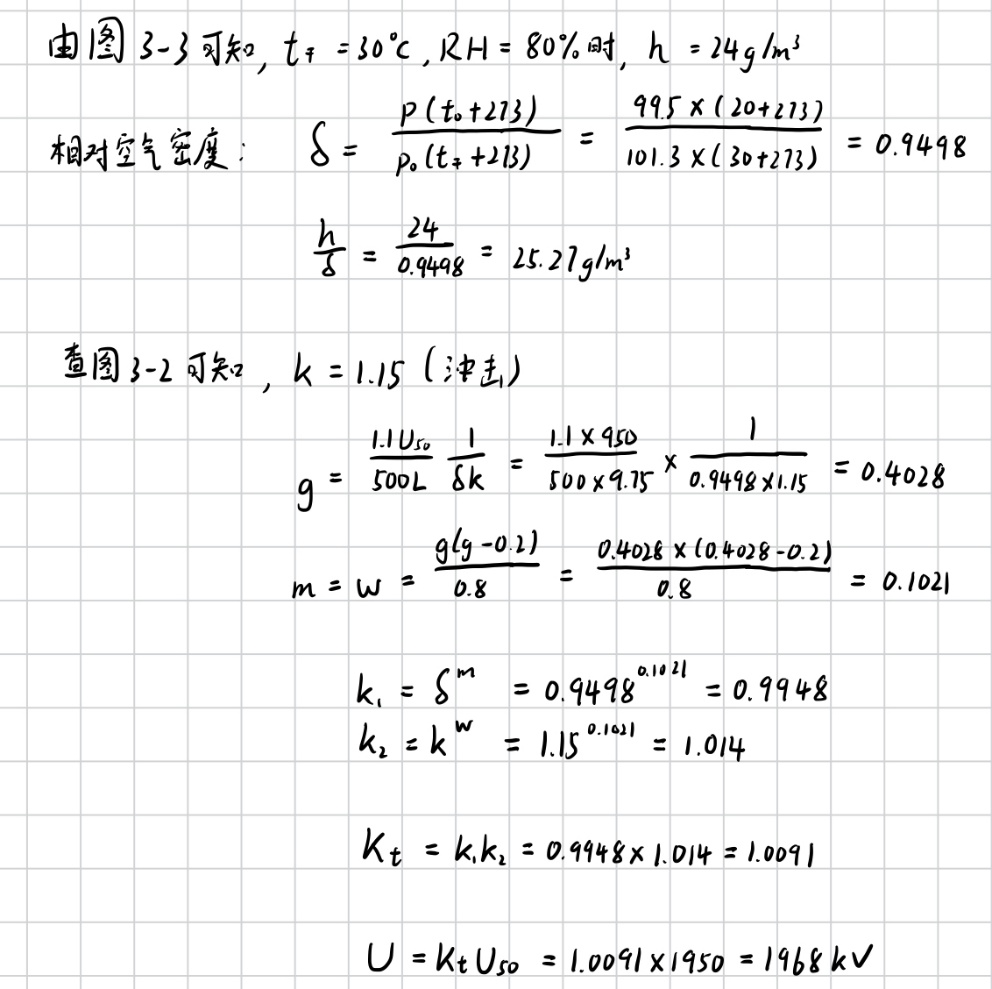 由图3-3可知, t干 = 30°C, RH = 80%时, h = 24g/m³
相对空气密度: δ = p(t₀+273)/p₀(t干+273) = 99.5×(20+273)/101.3×(30+273) = 0.9498
h/δ = 24/0.9498 = 25.27g/m³
查图3-2可知, k = 1.15 (冲击)
g = 1.1U₅₀/500L 1/δk = 1.1×950/500×9.75 × 1/0.9498×1.15 = 0.4028
m = w = g(g-0.2)/0.8 = 0.4028×(0.4028-0.2)/0.8 = 0.1021
k₁ = δ^m = 0.9498^0.1021 = 0.9948
k₂ = k^w = 1.15^0.1021 = 1.014
Kt = k₁k₂ = 0.9948×1.014 = 1.0091
U = KtU₅₀ = 1.0091×1950 = 1968kV